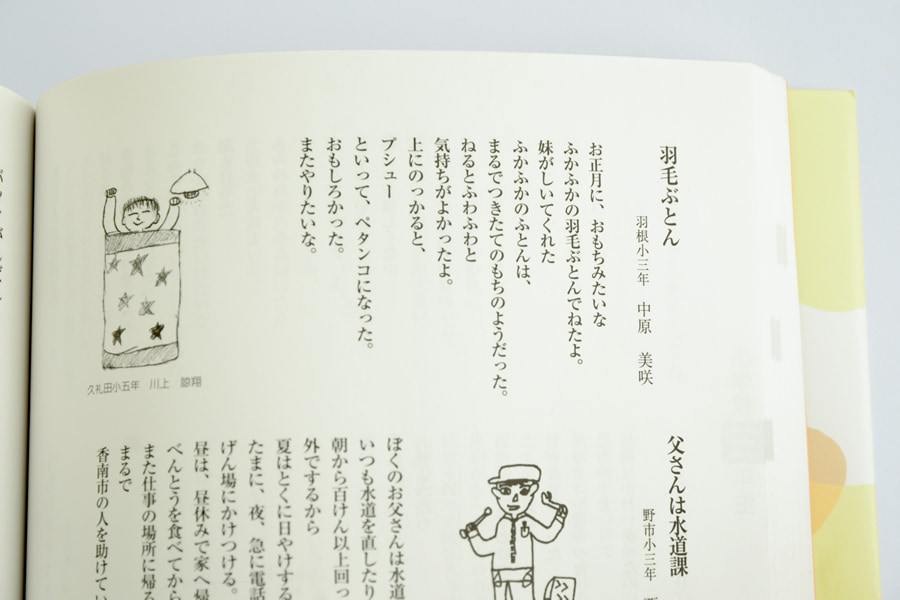 羽毛ぶとん
羽根小三年 中原 美咲
お正月に、おもちみたいな
ふかふかの羽毛ぶとんでねたよ。
妹がしいてくれた
ふかふかのふとんは、
まるでつきたてのもちのようだった。
ねるとふわふわと
気持ちがよかったよ。
上にのっかると、
プシュー
といって、ペタンコになった。
おもしろかった。
またやりたいな。
久礼田小五年 川上 翔
父さんは水道課
野市小三年
ぼくのお父さんは水道
いつも水道を直したり
朝から百けん以上回っ
外でするから
夏はとくに日やけする
たまに、夜、急に電話
げん場にかけつける。
昼は、昼休みで家へ帰
べんとうを食べてから
また仕事の場所に帰る
まるで
香南市の人を助けてい